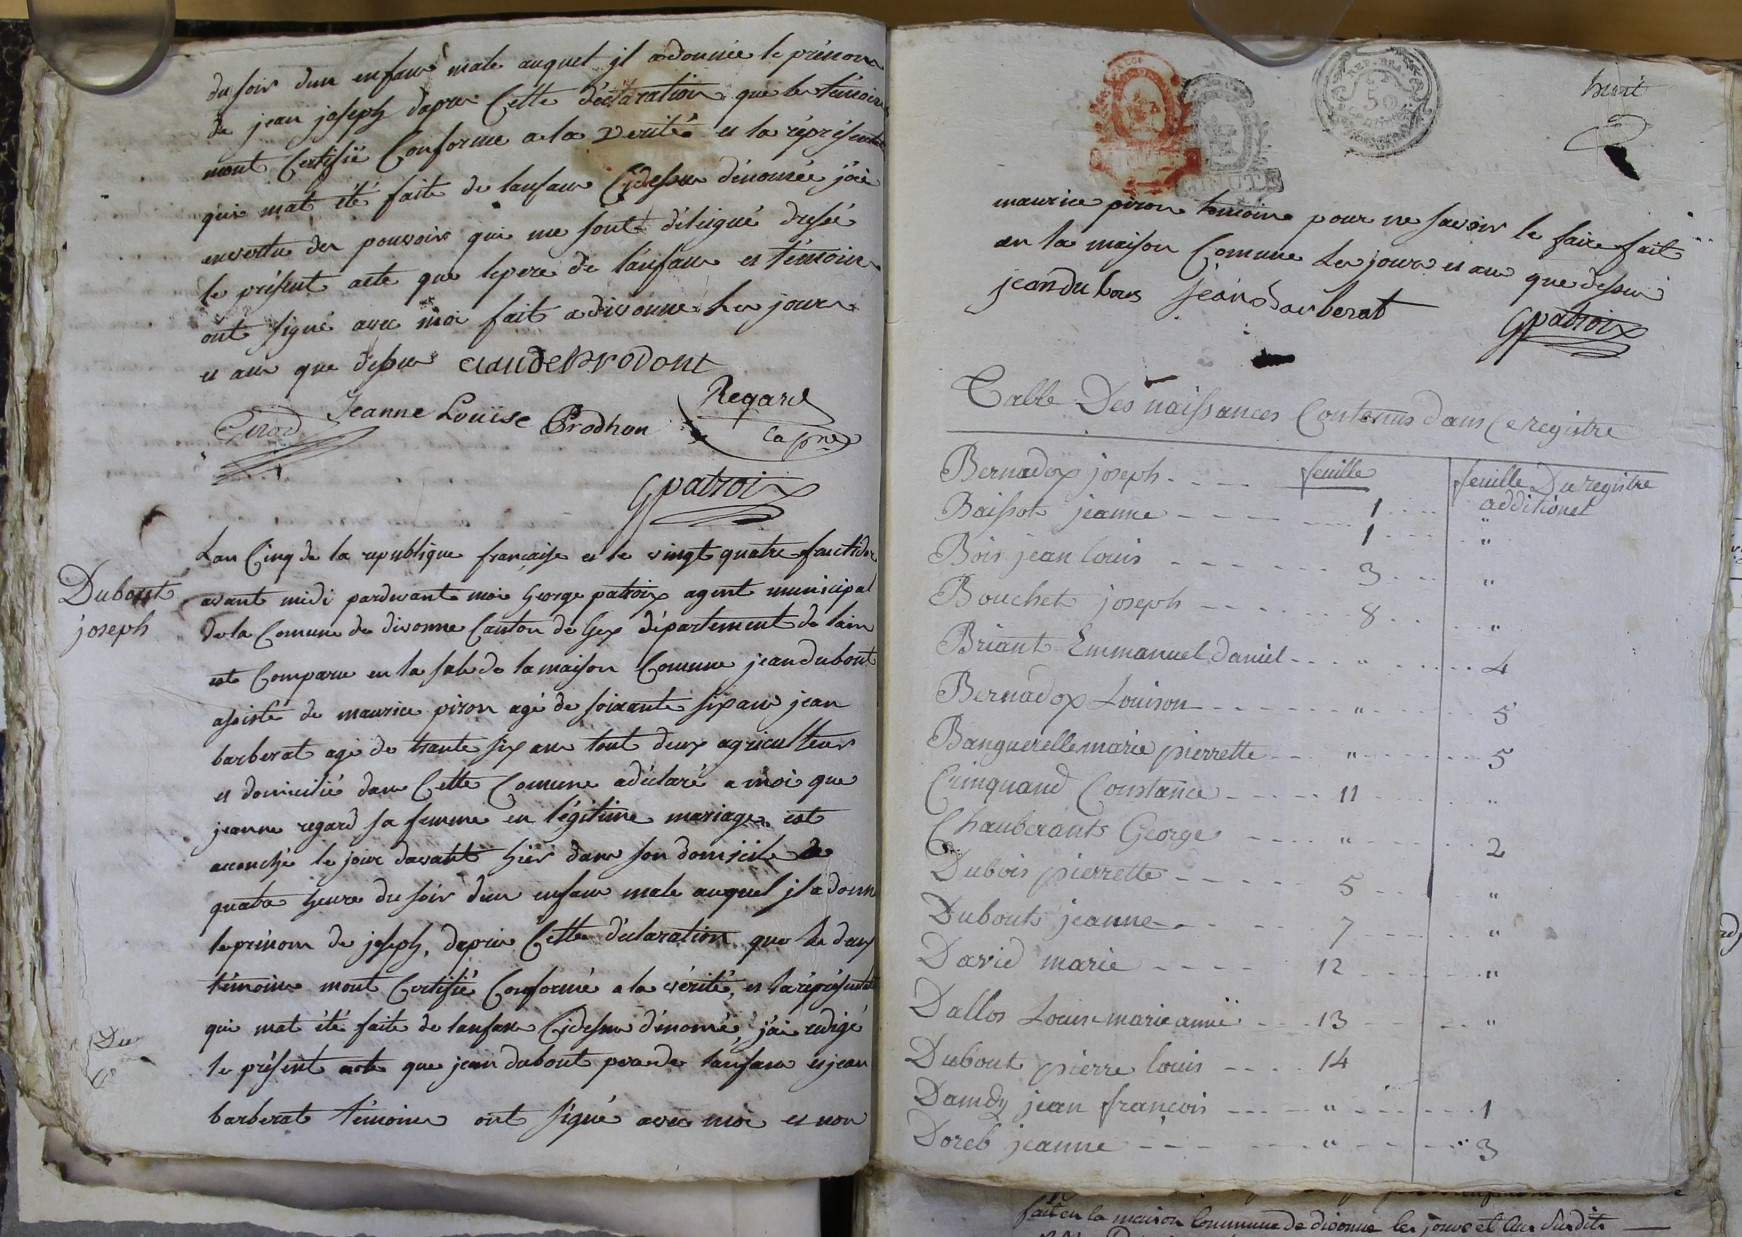 du soir dun enfant male auquel jl adonnée le prénom
de jean joseph dapres Cette déclaration que les témoins
mont Certifié Conforme a la verité et la représentation
qui mat été faite de lanfant Cidessus dénomée jai
envertu des pouvoirs qui me sont délégué dressé
le présent acte que lepere de lanfant et témoins
ont signé avec moi fait a divonne les jours
et an que dessus Claude Prodont
Girod Jeanne Louise Prodhon Regard
Gpatroix
Dubout
joseph
Lan Cinq de la republique française et le vingt quatre fructidor
avant midi pardevant moi George patroix agent municipal
de la Comune de divonne Canton de Gex département de lain
est Comparu en la sale de la maison Comune jean dubout
assisté de maurice piron agé de soixante six ans jean
barberat agé de trante six ans tout deux agriculteurs
et domicilié dans Cette Comune adéclaré a moi que
jeanne regard sa femme en légitime mariage est
acouchée le jour davant hier dans son domicile a
quatre heure du soir dun enfant male auquel jl a donn
le prénom de joseph, dapres Cette déclaration que les deux
témoins mont Certifié Conforme a la vérité, et la représentation
qui mat été faite de lanfant Cidessus dénomé, jai redigé
le présent acte que jean dubout pere de lanfant et jean
barberat témoins ont signé avec moi et non
Du
REP. FRA.
50
huit
maurice piron témoin pour ne savoir le faire fait
en la maison Comune les jours et an que dessus
jean dubous jean barberat
Gpatroix
Table Des naissances Contenus dans Ce registre
feuille feuille Du registre
additionel
Bernadox joseph - - - - 1 - - - "
Baissot jeanne - - - - 1 - - - "
Bris jean louis - - - - 3 - - - "
Bouchet joseph - - - - 8 - - - "
Briant Emmanuel Daniel - - - " - - - 4
Bernadox Louison - - - - " - - - 5
Banguerelle marie pierrette - - - " - - - 5
Crinquand Constance - - - - 11 - - - "
Chauberants George - - - - " - - - 2
Dubois pierrette - - - - 5 - - - "
Dubout jeanne - - - - 7 - - - "
David marie - - - - 12 - - - "
Dallos Louise marie - - - 13 - - - "
Dubout pierre louis - - - - 14
Damdy jean françois - - - " - - - 1
Doreb jeanne - - - - " - - - 3
fait en la maison Commune de divonne les jours et an susdits